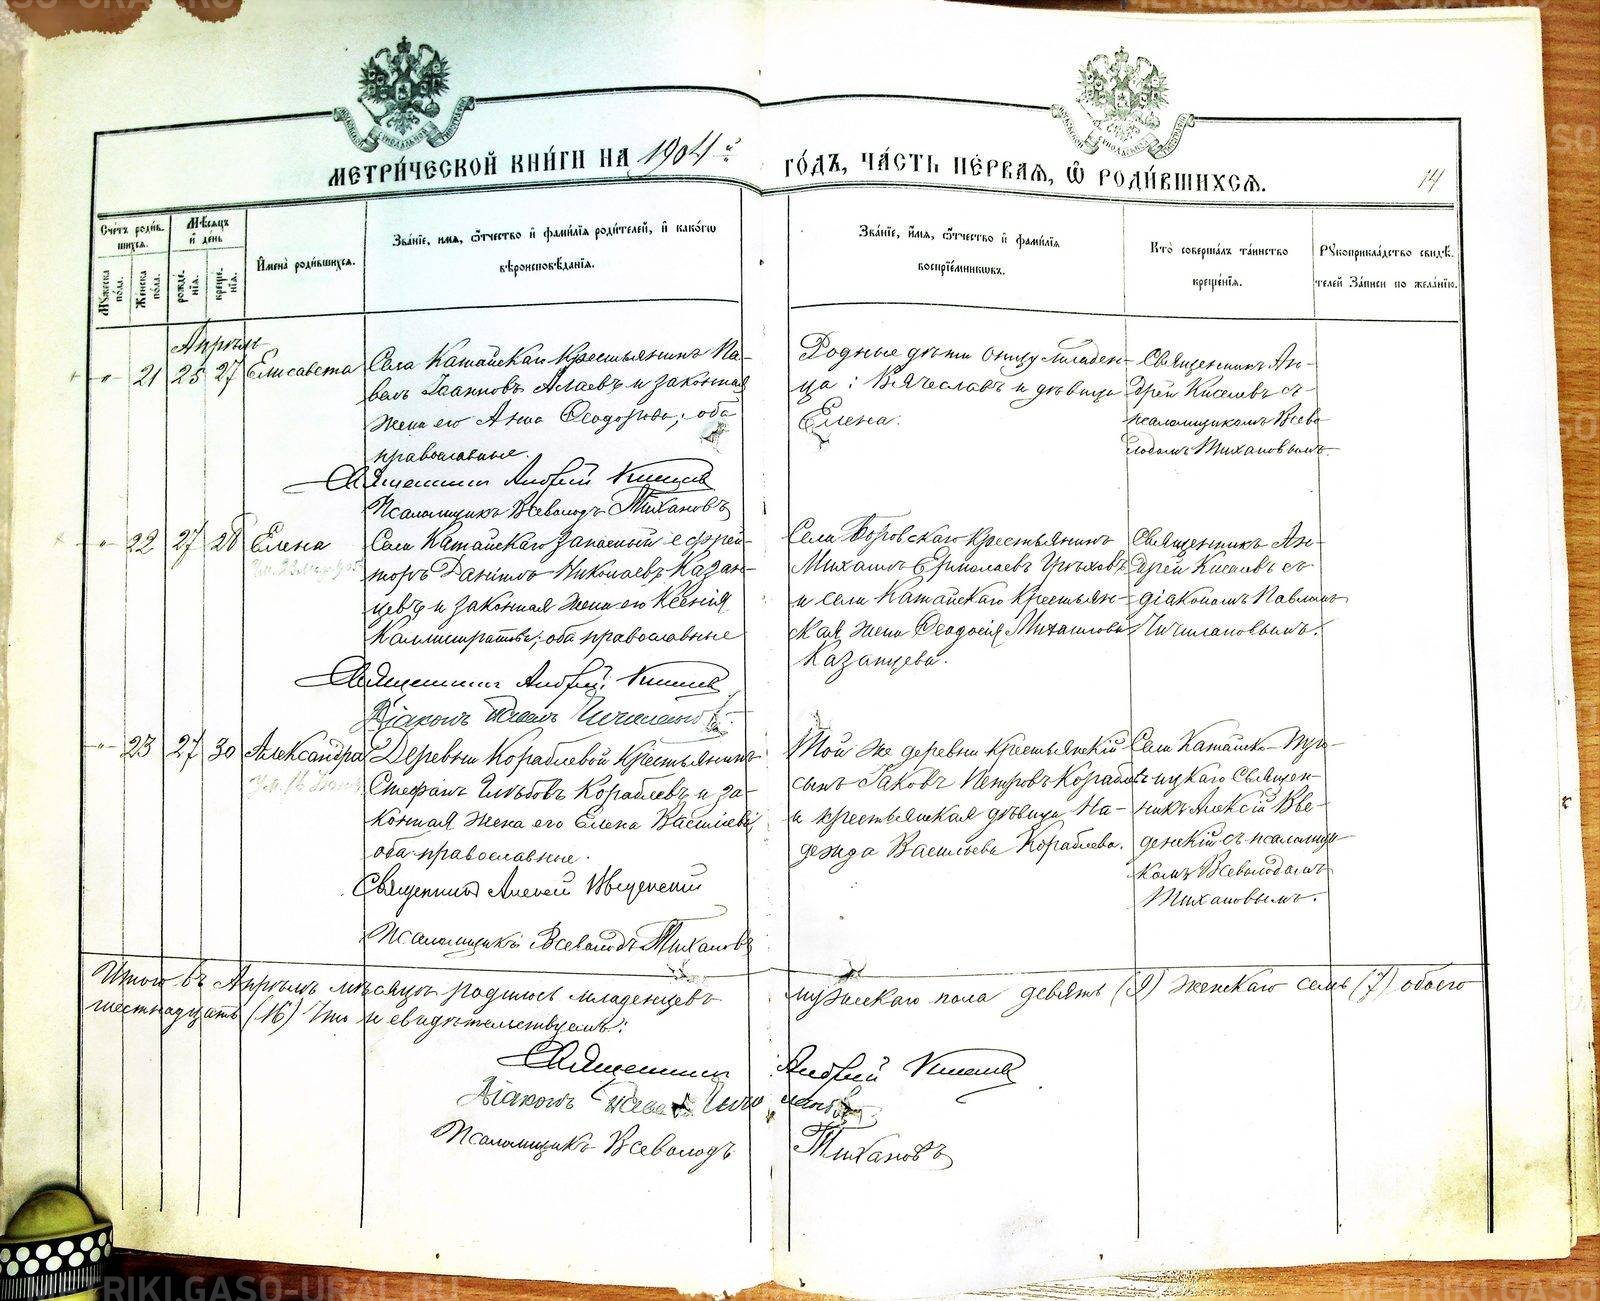 METRIKI.GASO-URAL.RU
МЕТРИ́ЧЕСКОЙ КНИ́ГИ НА 1904й
ГО́ДЪ, ЧА́СТЬ ПЕ́РВАЯ, Ѿ РОДИ́ВШИХСЯ.
14
Сче́тъ роди́в-
шихся.
Мѣ́сяцъ
и҆ де́нь
Му́жеска по́ла.
Же́нска по́ла.
рожде́-
нія.
креще́-
нія.
И҆мена̀ роди́вшихся.
Зва́ніе, и́мя, ѻ҆́тчество и҆ фами́лїя роди́телей, и҆ како́гѡ
вѣроисповѣ́данїя.
Зва́ніе, и҆́мя, ѻ҆́тчество и҆ фами́лїя
воспрїе́мникѡвъ.
Кто̀ соверша́лъ та́инство
креще́нїя.
Рꙋкоприкла́дство свидѣ́-
телей за́писи по жела́нїю.
Апрѣль
" 21 25 27 Елисавета
Села Катайскаго крестьянинъ Па-
велъ Іоанновъ Агаевъ и законная
жена его Анна Ѳеодорова; оба
православные.
Священникъ Андрей Киселевъ
Псаломщикъ Всеволодъ Тихановъ
Родные дѣти отцу младен-
ца: Вячеславъ и дѣвица
Елена.
Священникъ Ан-
дрей Киселевъ съ
псаломщикомъ Всево-
лодомъ Тихановымъ
" 22 27 28 Елена
Села Катайскаго запасный ефрей-
торъ Даніилъ Николаевъ Казан-
цевъ и законная жена его Ксенія
Каллистратова; оба православные
Священникъ Андрей Киселевъ
Діаконъ Павелъ Чичилановъ
Села Боровскаго крестьянинъ
Михаилъ Ермолаевъ Грѣховъ
и села Катайскаго крестьян-
ская жена Ѳеодосія Михаилова
Казанцева.
Священникъ Ан-
дрей Киселевъ съ
діакономъ Павломъ
Чичилановымъ.
" 23 27 30 Александра
Деревни Кораблевой крестьянинъ
Стефанъ Глѣбовъ Кораблевъ и за-
конная жена его Елена Василіева,
оба православные.
Священникъ Алексій Введенскій
Псаломщикъ Всеволодъ Тихановъ
Той же деревни крестьянскій
сынъ Іаковъ Петровъ Кораблевъ
и крестьянская дѣвица На-
дежда Васильева Кораблева.
Села Катайско-
Священ-
никъ Алексій Вве-
денскій съ псаломщи-
комъ Всеволодомъ
Тихановымъ.
Итого въ Апрѣлѣ мѣсяцѣ родилось младенцевъ мужескаго пола девять (9) женскаго семь (7) обоего
шестнадцать (16) Что и свидѣтельствуемъ:
Священникъ Андрей Киселевъ
Діаконъ Павелъ Чичилановъ
Псаломщикъ Всеволодъ Тихановъ
METRIKI.GASO-URAL.RU
METRIKI.GASO